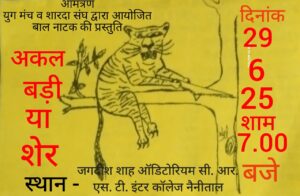 आमंत्रण
युग मंच व शारदा संघ द्वारा आयोजित
बाल नाटक की प्रस्तुति
अकल
बड़ी
या
शेर
दिनांक
29
6
25
शाम
7.00
बजे
स्थान -
जगदीश शाह ऑडिटोरियम सी. आर.
एस. टी. इंटर कॉलेज नैनीताल